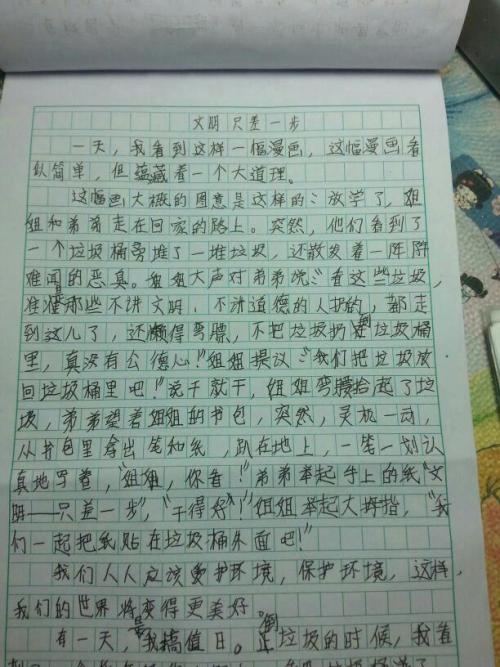 文明只差一步
一天，我看到这样一幅漫画，这幅漫画看
似简单，但蕴藏着一个大道理。
这幅画大概的图意是这样的：放学了，姐
姐和弟弟走在回家的路上。突然，他们看到了
一个垃圾桶旁堆了一堆垃圾，还散发着一阵阵
难闻的恶臭。姐姐大声对弟弟说："看这些垃圾，
准是那些不讲文明、不讲道德的人扔的，都走
到这儿了，还懒得弯腰，不把垃圾扔倒垃圾桶
里，真没有公德心！"姐姐提议："我们把垃圾放
回垃圾桶里吧！"说干就干，姐姐弯腰拾起了垃
圾，弟弟望着姐姐的书包，突然，灵机一动，
从书包里拿出笔和纸，趴在地上，一笔一划认
真地写着，"姐姐，你看！"弟弟举起手上的纸"文
明——只差一步"，"干得好！"姐姐举起大拇指，"我
们一起把纸贴在垃圾桶外面吧！"
我们人人应该爱护环境，保护环境，这样，
我们的世界将变得更美好。
有一天，是我搞值日。倒垃圾的时候，我看